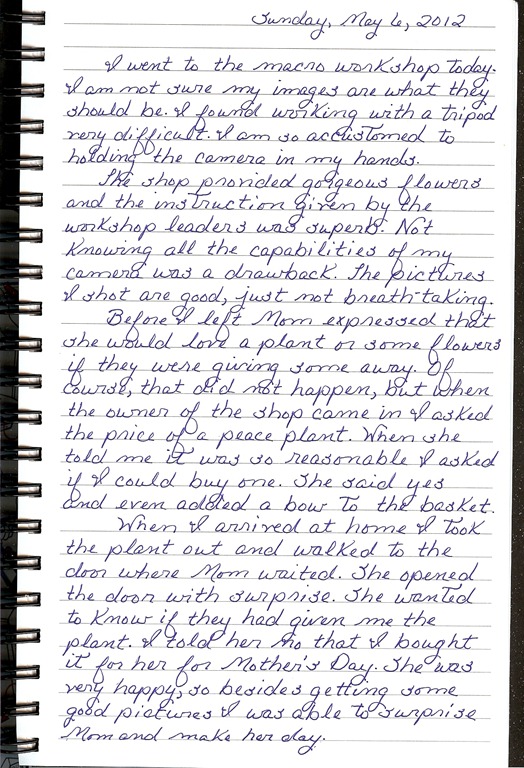 Sunday, May 6, 2012
I went to the macro workshop today.
I am not sure my images are what they
should be. I found working with a tripod
very difficult. I am so accustomed to
holding the camera in my hands.
The shop provided gorgeous flowers
and the instruction given by the
workshop leaders was superb. Not
knowing all the capabilities of my
camera was a drawback. The pictures
I shot are good, just not breath-taking.
Before I left Mom expressed that
she would love a plant or some flowers
if they were giving some away. Of
course, that did not happen, but when
the owner of the shop came in I asked
the price of a peace plant. When she
told me it was so reasonable I asked
if I could buy one. She said yes
and even added a bow to the basket.
When I arrived at home I took
the plant out and walked to the
door where Mom waited. She opened
the door with surprise. She wanted
to know if they had given me the
plant. I told her no that I bought
it for her for Mother's Day. She was
very happy, so besides getting some
good pictures I was able to surprise
Mom and make her day.